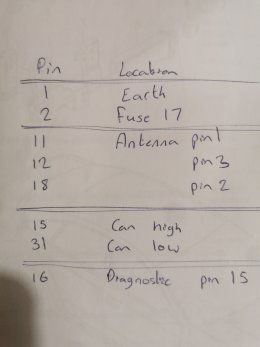 Pin Location
1 Earth
2 Fuse 17
11 Antenna pin 1
12 pin 3
18 pin 2
15 Can high
31 Can low
16 Diagnostic pin 15